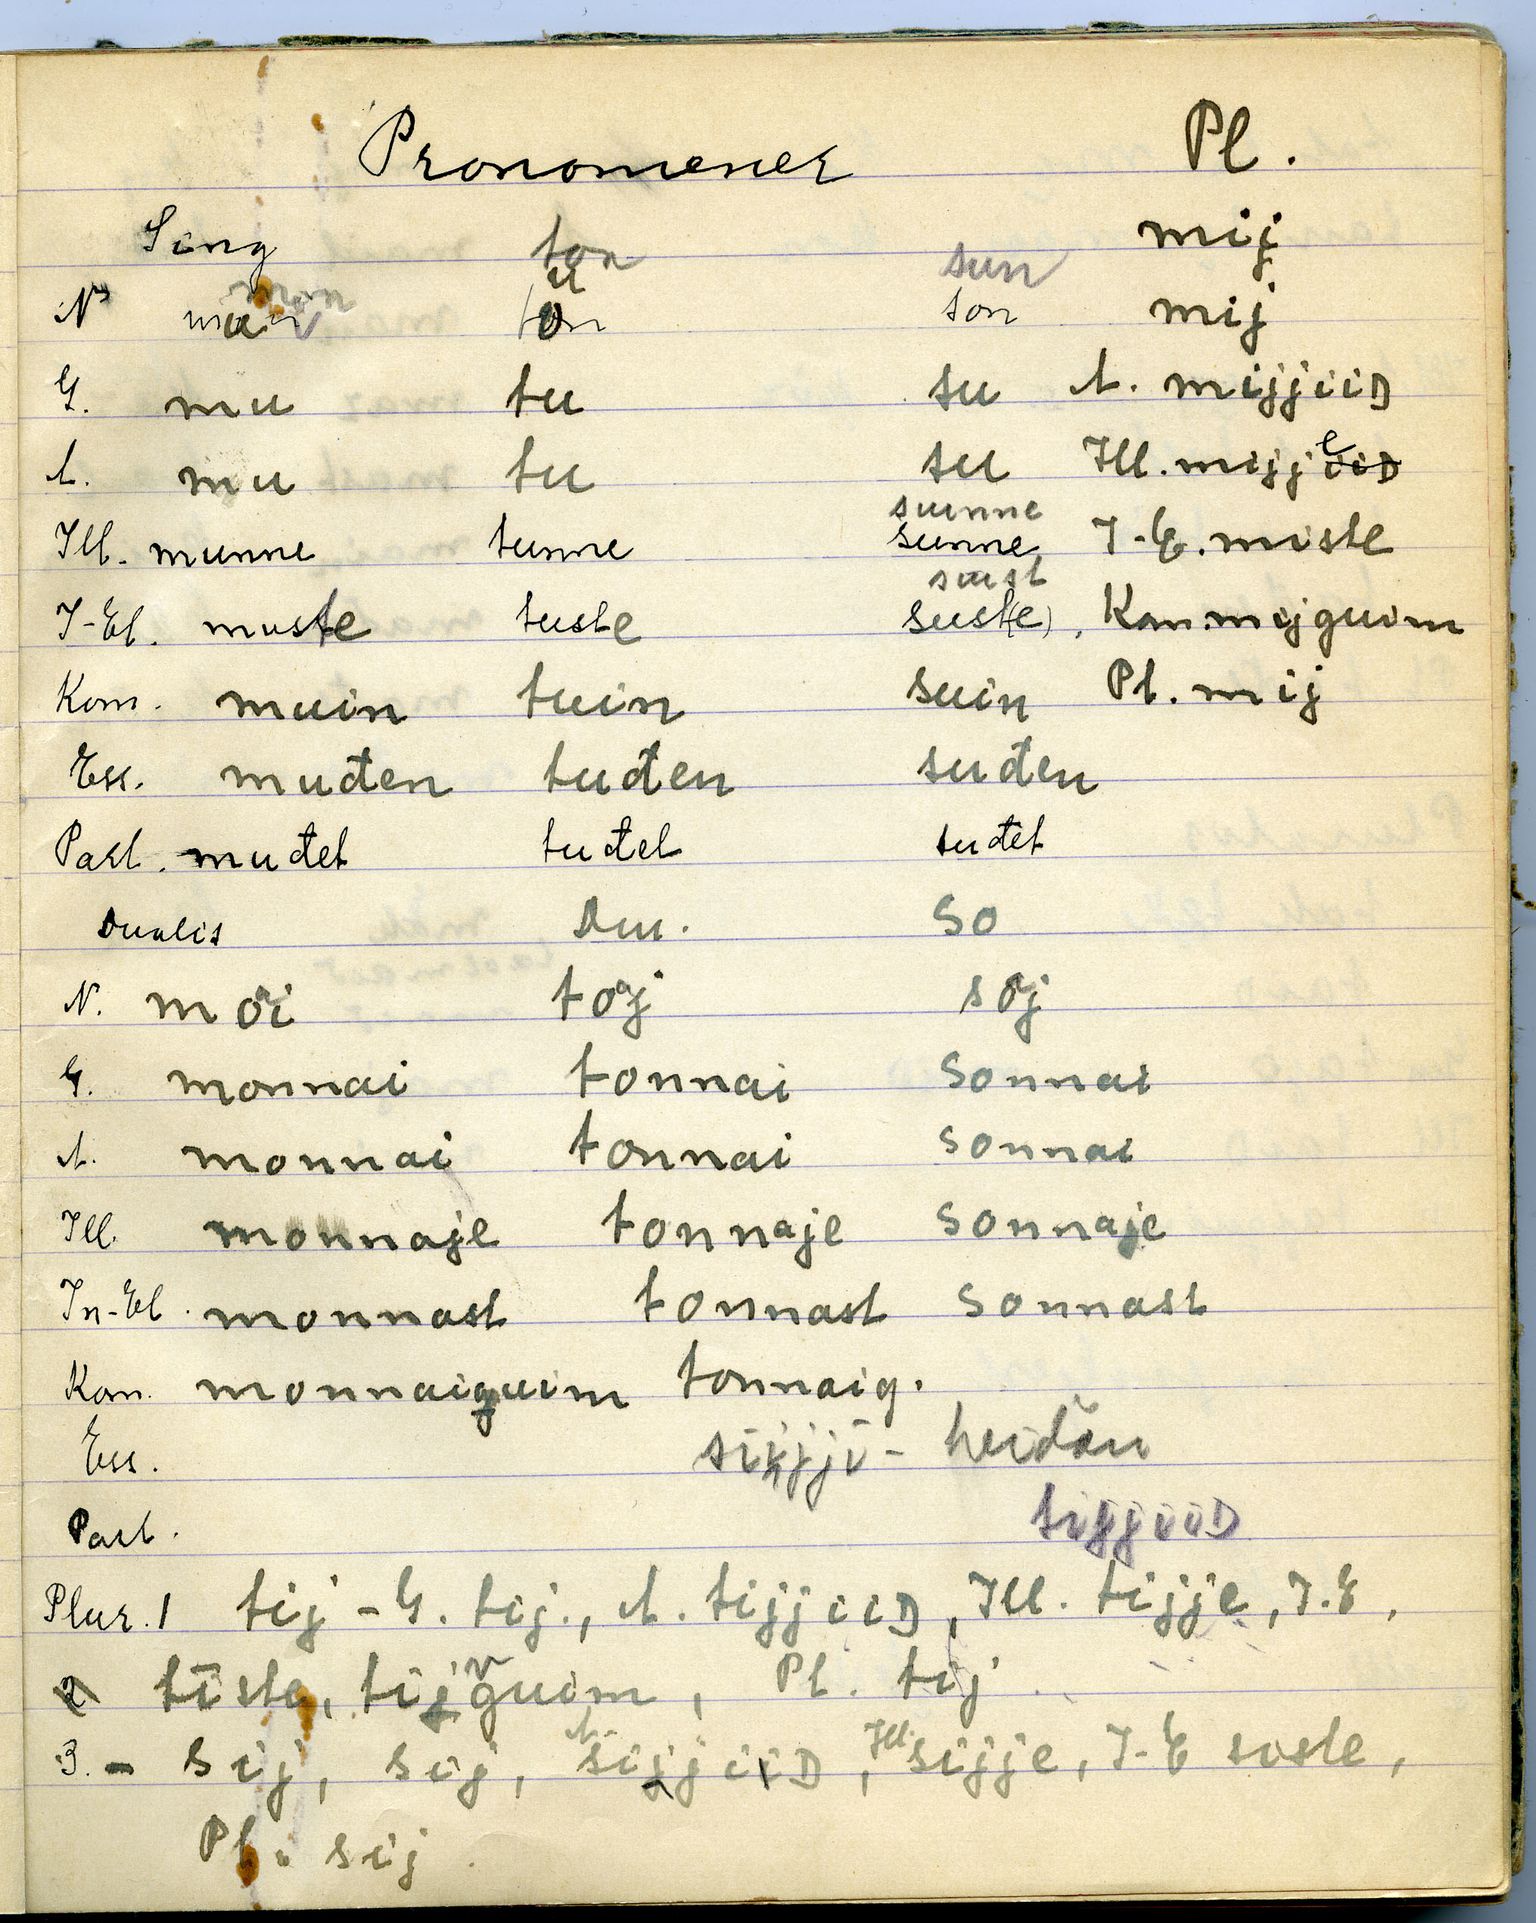 Pronomener Pl.
Sing ton sun mij
mon u
N. man ton son mij
G. mu tu su A. mijjiiD
A. mu tu su Ill. mijje iiD
suunne
Ill. munne tunne sunne I-E. miste
suust
I-El. muste tuste suste(e), Kom. mijguim
Kom. muin tuin suin Pl. mij
Ess. muđen tuđen suđen
Part. muđet tuđet suđet
Dualis Du. so
N. moi toj soj
G. monnai tonnai sonnai
A. monnai tonnai sonnai
Ill. monnaje tonnaje sonnaje
In-El. monnast tonnast sonnast
Kom. monnaiguim tonnaig.
Ess. heiđân
Part. tijjiiD
Plur. 1 tij - G. tij., A. tijjiiD, Ill. tijje, I.E,
2 tīste, tijguim, Pl. tij
3. - sij, sij, A. sijjiiD, Ill. sijje, I-E siste,
Pl. sij.